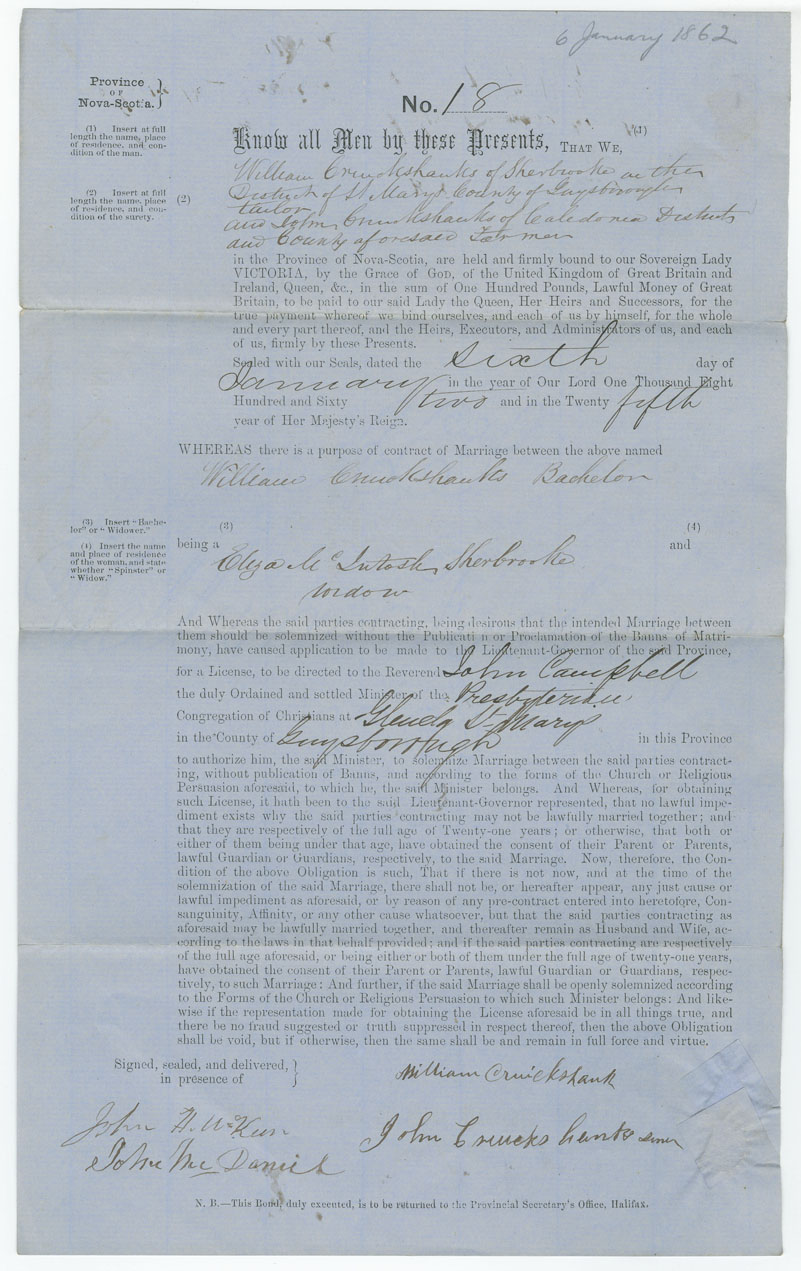 6 January 1862
Province
OF
Nova-Scotia. }
No. 18
(1) Insert at full
length the name, place
of residence, and con-
dition of the man.
Know all Men by these Presents, THAT WE, (1)
William Cruickshanks of Sherbrooke in the
(2) Insert at full
length the name, place
of residence, and con-
dition of the surety.
(2)
District of St Marys County of Guysborough
tailor
and John Cruickshanks of Caledonia District
and County aforesaid Farmer
in the Province of Nova-Scotia, are held and firmly bound to our Sovereign Lady
VICTORIA, by the Grace of GOD, of the United Kingdom of Great Britain and
Ireland, Queen, &c., in the sum of One Hundred Pounds, Lawful Money of Great
Britain, to be paid to our said Lady the Queen, Her Heirs and Successors, for the
true payment whereof we bind ourselves, and each of us by himself, for the whole
and every part thereof, and the Heirs, Executors, and Administrators of us, and each
of us, firmly by these Presents.
Sealed with our Seals, dated the sixth day of
January in the year of Our Lord One Thousand Eight
Hundred and Sixty two and in the Twenty fifth
year of Her Majesty's Reign.
WHEREAS there is a purpose of contract of Marriage between the above named
William Cruickshanks Bachelor
(3) Insert "Bache-
lor" or "Widower."
(3) (4)
(4) Insert the name
and place of residence
of the woman, and state
whether "Spinster" or
"Widow."
being a and
Eliza McIntosh Sherbrooke
widow
And Whereas the said parties contracting, being desirous that the intended Marriage between
them should be solemnized without the Publicati n or Proclamation of the Banns of Matri-
mony, have caused application to be made to the Lieutenant-Governor of the said Province,
for a License, to be directed to the Reverend John Campbell
the duly Ordained and settled Minister of the Presbyterian
Congregation of Christians at Glenelg St Marys
in the County of Guysborough in this Province
to authorize him, the said Minister, to solemnize Marriage between the said parties contract-
ing, without publication of Banns, and according to the forms of the Church or Religious
Persuasion aforesaid, to which he, the said Minister belongs. And Whereas, for obtaining
such License, it hath been to the said Lieutenant-Governor represented, that no lawful impe-
diment exists why the said parties contracting may not be lawfully married together; and
that they are respectively of the full age of Twenty-one years; or otherwise, that both or
either of them being under that age, have obtained the consent of their Parent or Parents,
lawful Guardian or Guardians, respectively, to the said Marriage. Now, therefore, the Con-
dition of the above Obligation is such, That if there is not now, and at the time of the
solemnization of the said Marriage, there shall not be, or hereafter appear, any just cause or
lawful impediment as aforesaid, or by reason of any pre-contract entered into heretofore, Con-
sanguinity, Affinity, or any other cause whatsoever, but that the said parties contracting as
aforesaid may be lawfully married together, and thereafter remain as Husband and Wife, ac-
cording to the laws in that behalf provided; and if the said parties contracting are respectively
of the full age aforesaid, or being either or both of them under the full age of twenty-one years,
have obtained the consent of their Parent or Parents, lawful Guardian or Guardians, respec-
tively, to such Marriage: And further, if the said Marriage shall be openly solemnized according
to the Forms of the Church or Religious Persuasion to which such Minister belongs: And like-
wise if the representation made for obtaining the License aforesaid be in all things true, and
there be no fraud suggested or truth suppressed in respect thereof, then the above Obligation
shall be void, but if otherwise, then the same shall be and remain in full force and virtue.
Signed, sealed, and delivered, }
in presence of
William Cruickshank
John H. McKeen
John Cruickshanks
John McDaniel
N. B.—This Bond, duly executed, is to be returned to the Provincial Secretary's Office, Halifax.